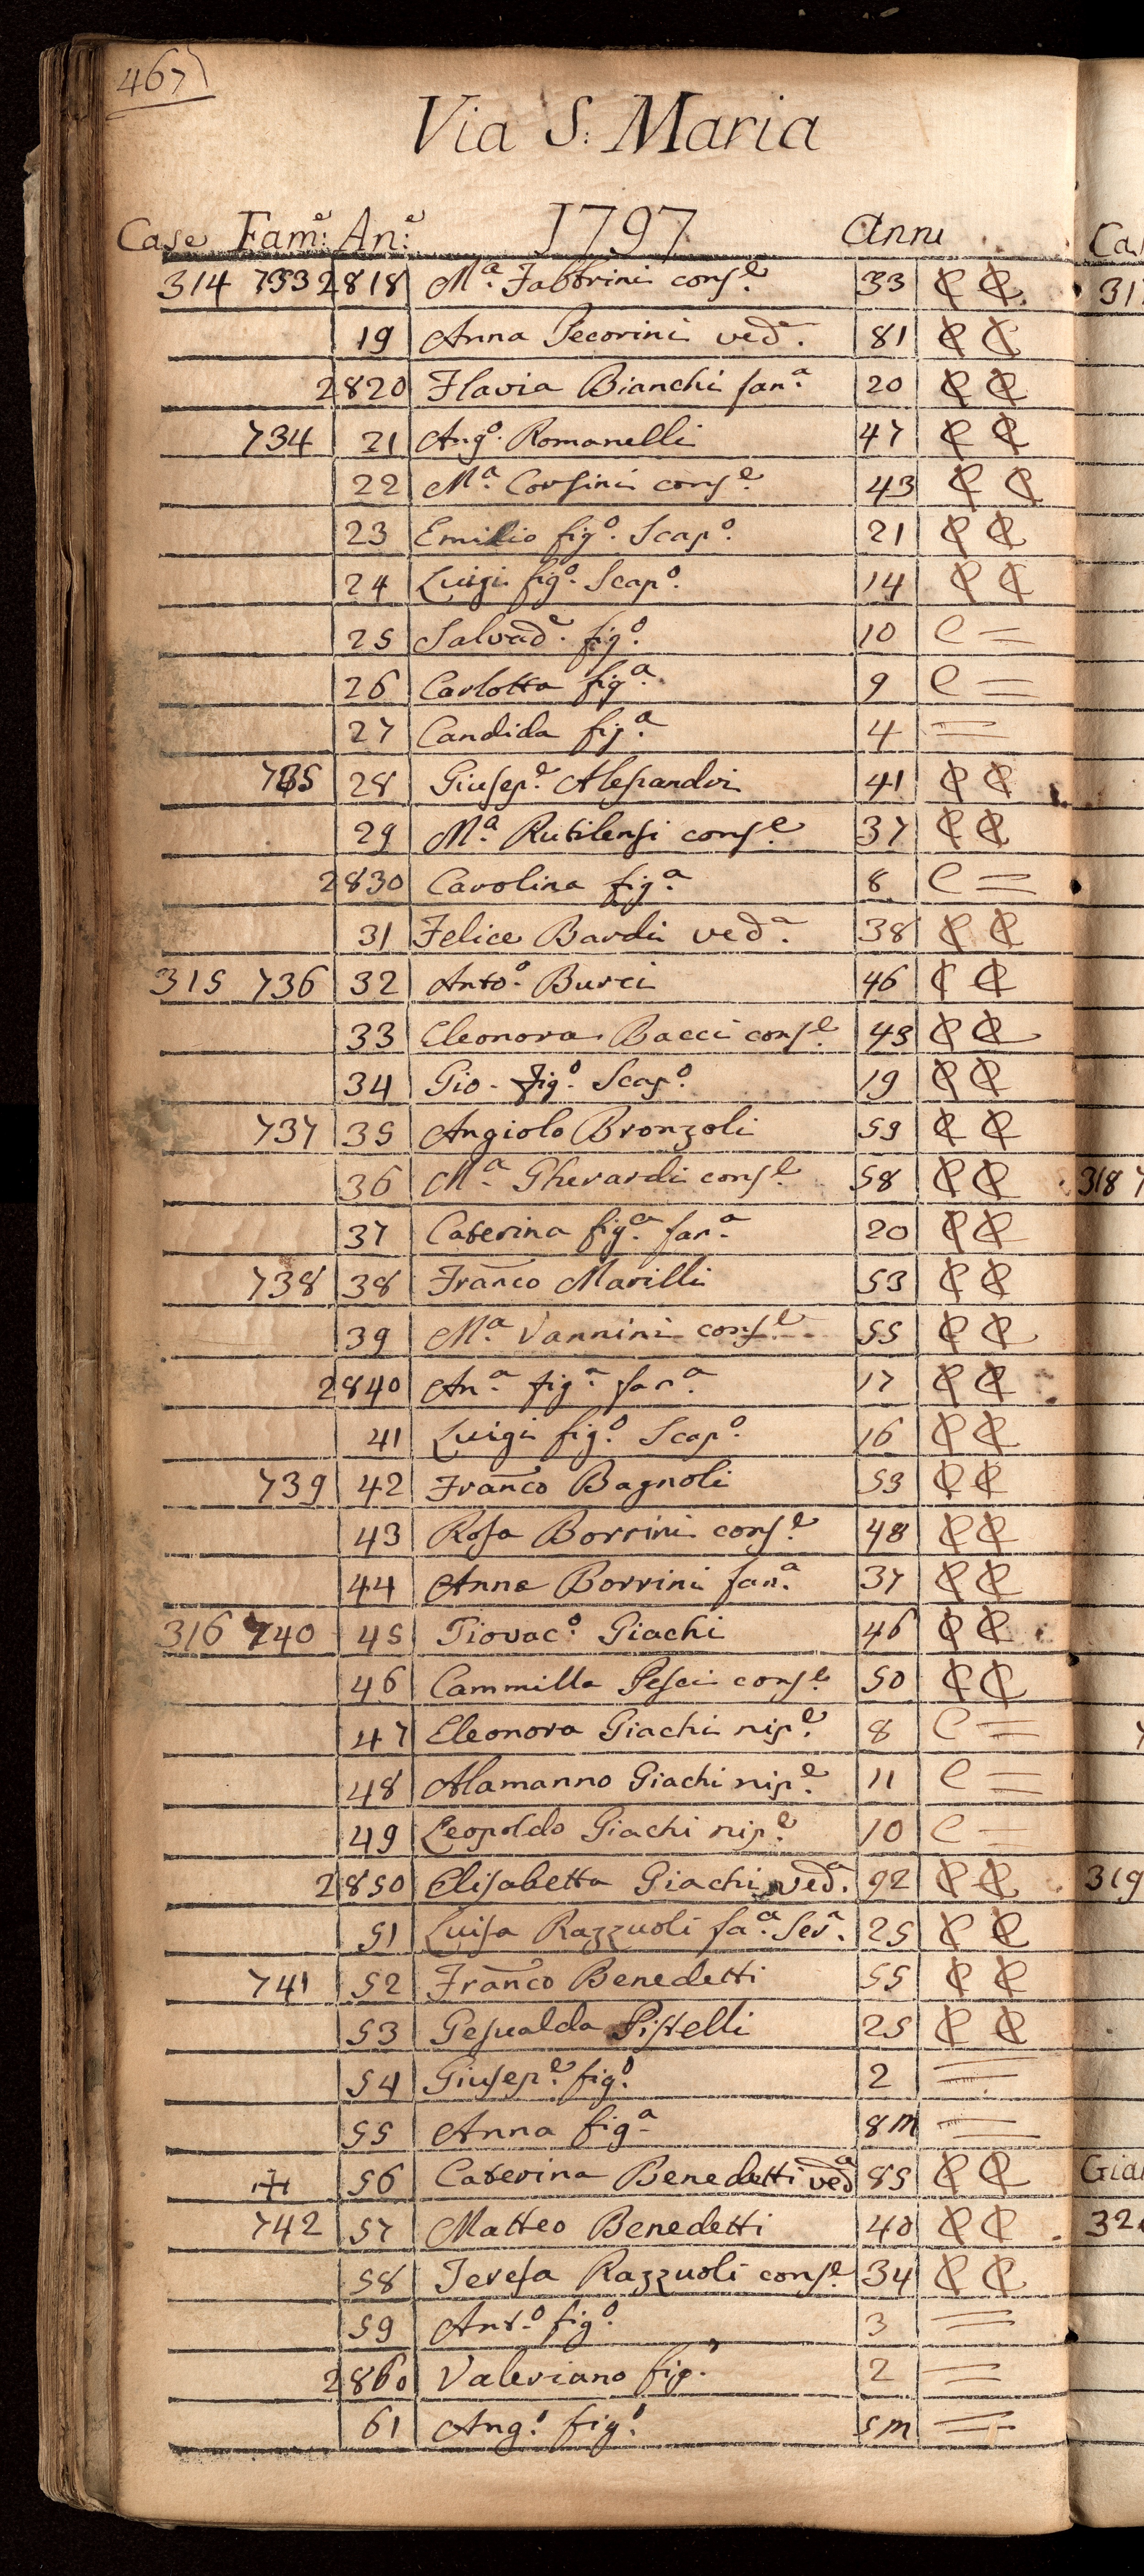 467
Via S. Maria
Case Fam:e An:e 1797 Anni
314 733 2818 M.a Fabbrini cons.e 33
19 Anna Pecorini ved.a 81
2820 Flavia Bianchi fan.a 20
734 21 Ang.o Romanelli 47
22 M.a Corsini cons.e 43
23 Emilio fig.o Scap.o 21
24 Luigi fig.o Scap.o 14
25 Salvad.e fig.o 10 C =
26 Carlotta fig.a 9 C =
27 Candida fig.a 4 =
735 28 Giusep.e Alesandri 41
29 M.a Rutilensi cons.e 37
2830 Carolina fig.a 8 C =
31 Felice Bardi ved.a 38
315 736 32 Anto.o Burci 46
33 Eleonora Bacci cons.e 43
34 Gio. fig.o Scap.o 19
737 35 Angiolo Bronzoli 59
36 M.a Gherardi cons.e 58
37 Caterina fig.a fan.a 20
738 38 Franco Marilli 53
39 M.a Vannini cons.e 55
2840 An.a fig.a fan.a 17
41 Luigi fig.o Scap.o 16
739 42 Franco Bagnoli 53
43 Rosa Borrini cons.e 48
44 Anna Borrini fan.a 37
316 740 45 Giovac.o Giachi 46
46 Cammilla Pesci cons.e 50
47 Eleonora Giachi nip.e 8 C =
48 Alamanno Giachi nip.e 11 C =
49 Leopoldo Giachi nip.e 10 C =
2850 Elisabetta Giachi ved.a 92
51 Luisa Razzuoli fa.a Ser.a 25
741 52 Franco Benedetti 55
53 Gesualda Pistelli 25
54 Giusep.e fig.o 2 =
55 Anna fig.a 8m =
56 Caterina Benedetti ved.a 85
742 57 Matteo Benedetti 40
58 Teresa Razzuoli cons.e 34
59 Ant.o fig.o 3 =
2860 Valeriano fig.o 2 =
61 Ang.o fig.o 5m =
318
319